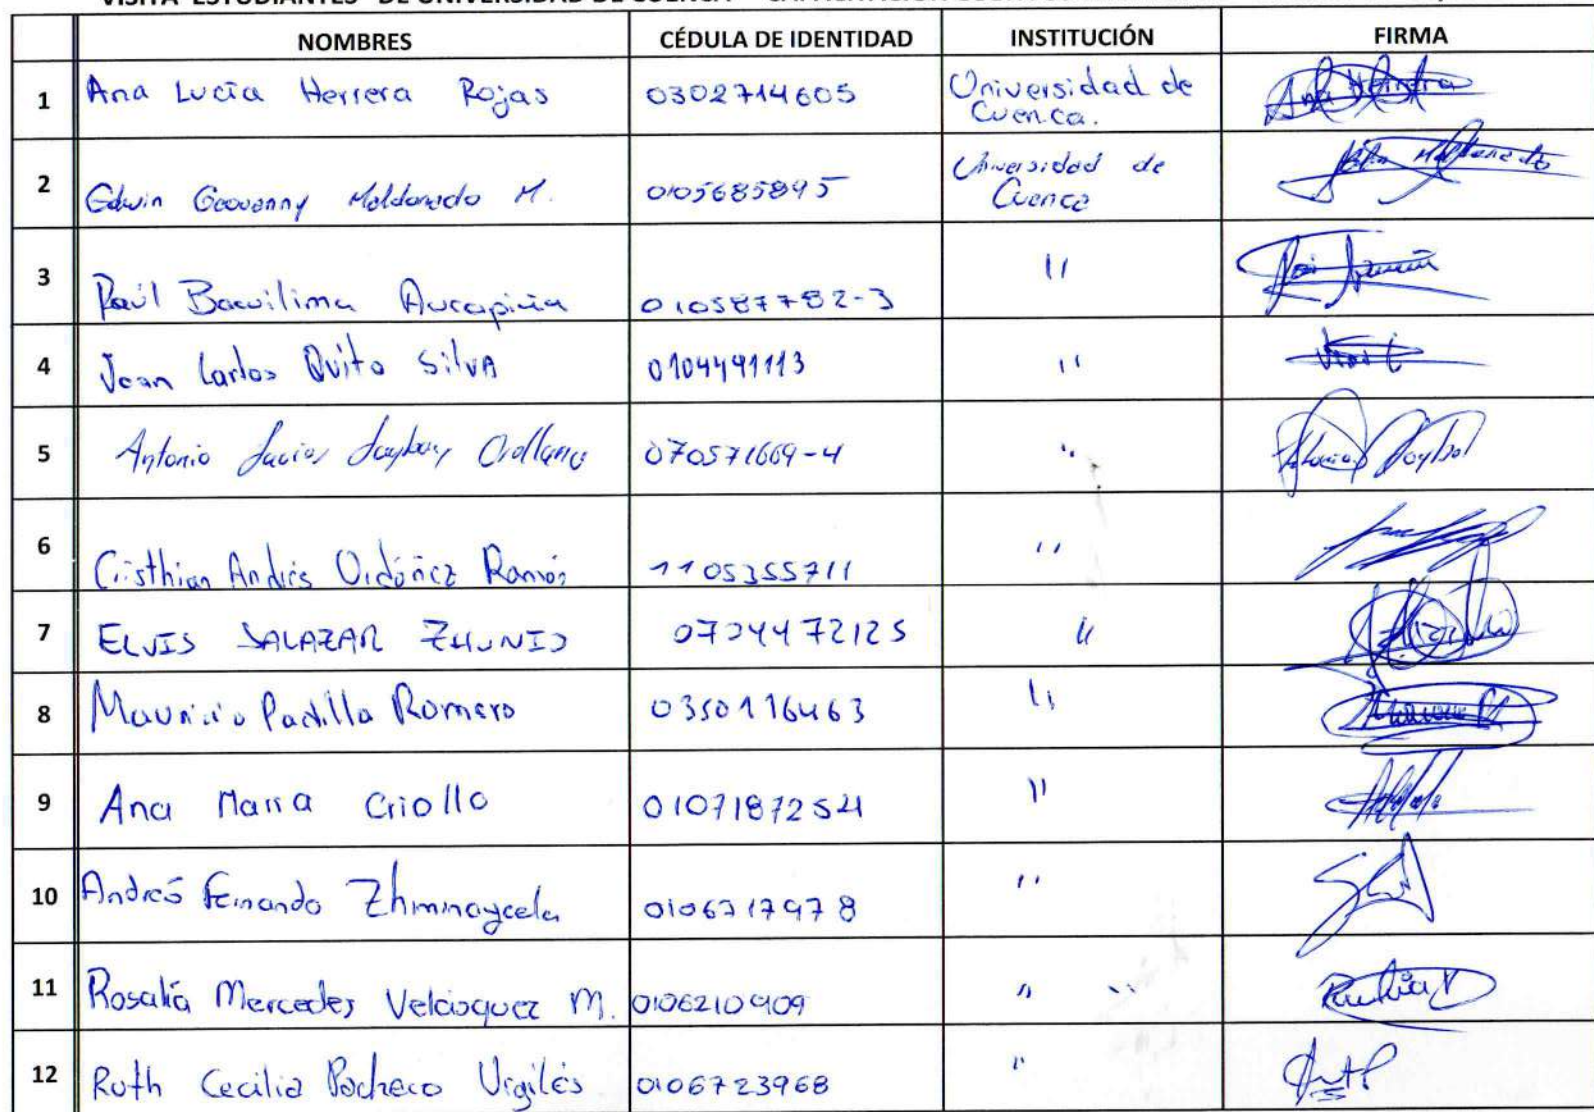 VISITA ESTUDIANTES DE UNIVERSIDAD DE CUENCA
NOMBRES CÉDULA DE IDENTIDAD INSTITUCIÓN FIRMA
1 Ana Lucía Herrera Rojas 0302714605 Universidad de Cuenca. Ana Herrera
2 Edwin Geovanny Maldonado M. 0105685895 Universidad de Cuenca Maldonado
3 Raúl Bacuilima Aucapiña 010587782-3 "
4 Jean Carlos Quito Silva 0104491113 "
5 Antonio Javier Saybay Orellana 070571669-4 "
6 Cristhian Andrés Ordóñez Ramón 1105355711 "
7 ELVIS SALAZAR ZHUNIO 0704472125 "
8 Mauricio Padilla Romero 0350116463 "
9 Ana Maria Criollo 0107187254 "
10 Andrés Fernando Zhiminaycela 0106717978 "
11 Rosalía Mercedes Velásquez M. 0106210909 " "
12 Ruth Cecilia Pacheco Urgilés 0106723968 "